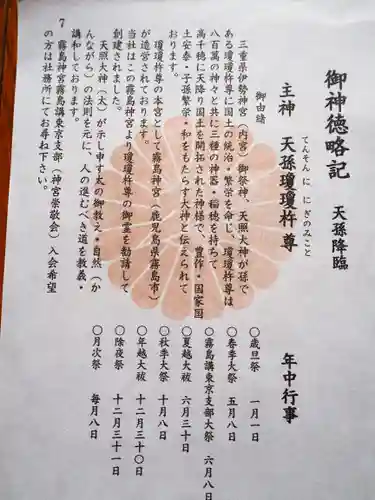 御神徳略記 天孫降臨
てんそん に にぎのみこと
主神 天孫瓊瓊杵尊
御由緒
三重県伊勢神宮(内宮)御祭神、天照大神が孫で
ある瓊瓊杵尊に国土の統治・繁栄を命じ、瓊瓊杵尊は
八百萬の神々と共に三種の神器・稲穂を持ちて
高千穂に天降り国土を開拓された神様で、豊作・国家国
土安泰・子孫繁栄・和をもたらす大神と伝えられて
おります。
瓊瓊杵尊の本宮として霧島神宮(鹿児島県霧島市)
が造営されております。
当社はこの霧島神宮より瓊瓊杵尊の御霊を勧請して
創建されました。
天照大神(太)が示し申す太の御教え・自然(か
んながら)の法則を元に、人の進むべき道を教義・
講和しております。
霧島神宮霧島講東京支部(神宮崇敬会)入会希望
の方は社務所にてお尋ね下さい。
7
年中行事
〇歳旦祭 一月一日
〇春季大祭 五月八日
〇霧島講東京支部大祭 六月八日
〇夏越大祓 六月三十日
〇秋季大祭 十月八日
〇年越大祓 十二月三十〇日
〇除夜祭 十二月三十一日
〇月次祭 毎月八日